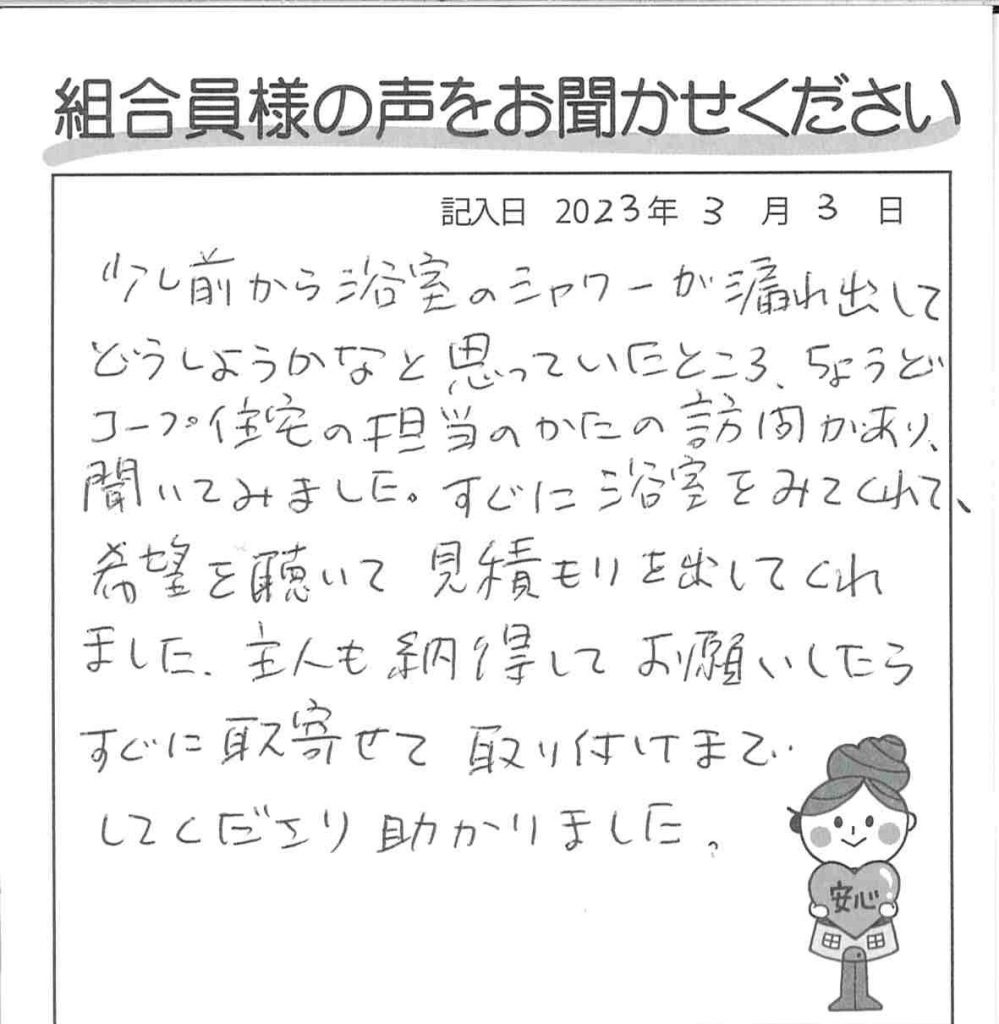 組合員様の声をお聞かせください
記入日 2023年 3 月 3 日
少し前から浴室のシャワーが漏れ出して
どうしようかなと思っていたところ、ちょうど
コープ住宅の担当のかたの訪問があり、
聞いてみました。すぐに浴室をみてくれて、
希望を聴いて 見積もりを出してくれ
ました。主人も納得してお願いしたら
すぐに取寄せて 取り付けまで
してくださり 助かりました。
安心